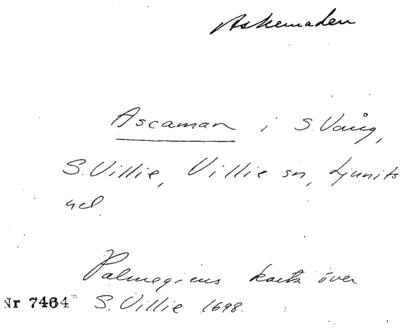 Askemaden
Ascaman i S. Vång,
S. Villie, Villie sn, Ljunits
hd.
Palmegrens karta över
Nr 7464 S. Villie 1698.